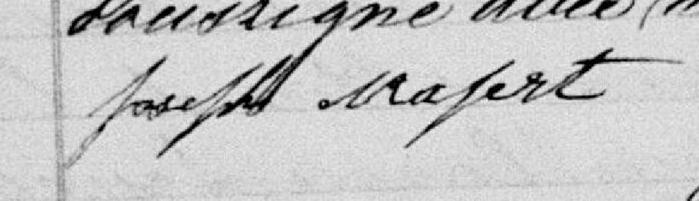 soussigné avec
Joseph Masert